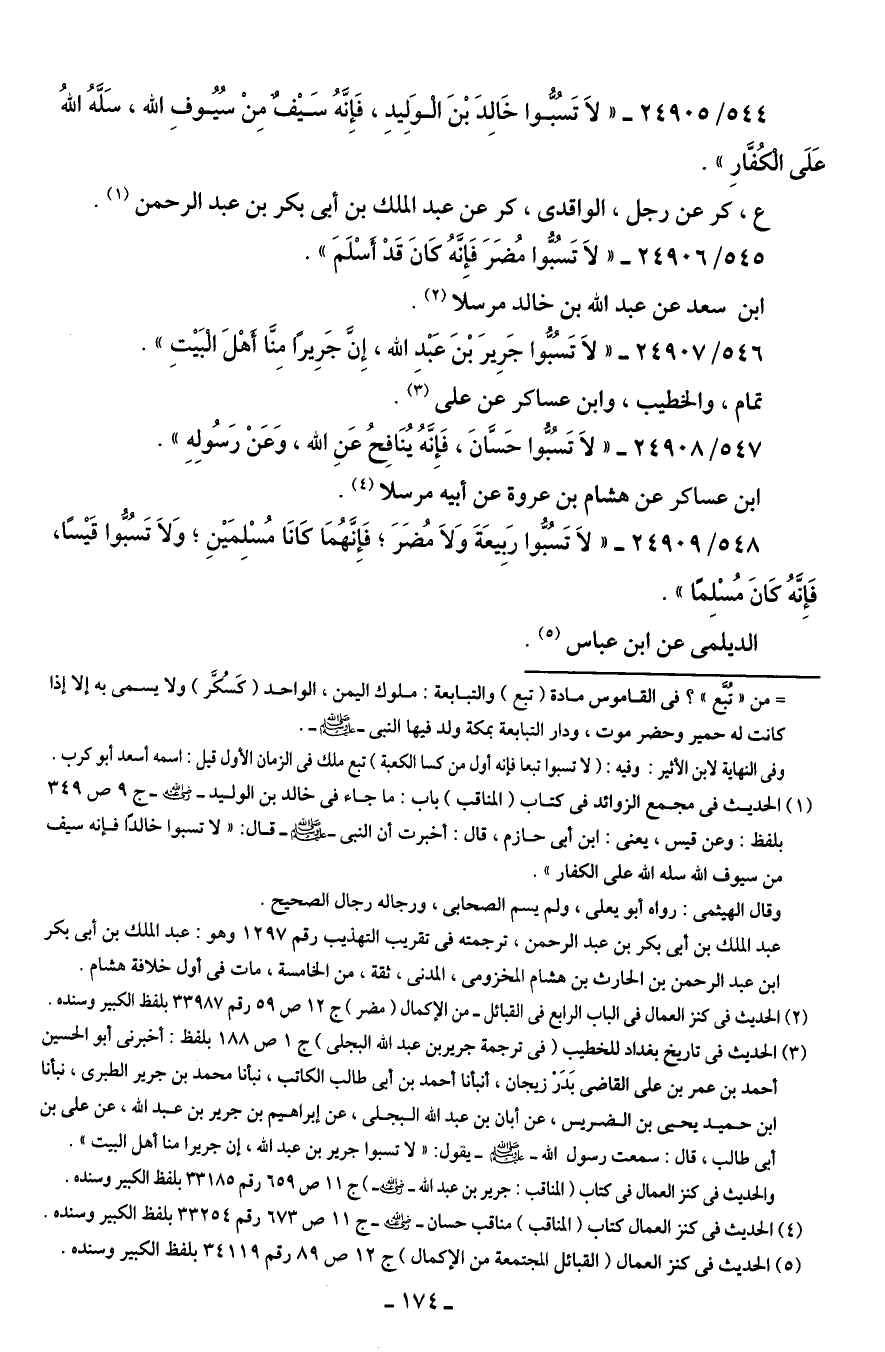 ٢٤٩٠٥/٥٤٤ ـ « لاَ تَسُبُّوا خَالِدَ بْنَ الْوَلِيدِ ، فَإِنَّهُ سَيْفٌ مِنْ سُيُوفِ الله ، سَلَّهُ اللهُ
عَلَى الْكُفَّارِ » .
ع ، كر عن رجل ، الواقدى ، كر عن عبد الملك بن أبى بكر بن عبد الرحمن (١) .
٢٤٩٠٦/٥٤٥ ـ « لاَ تَسُبُّوا مُضَرَ فَإِنَّهُ كَانَ قَدْ أَسْلَمَ » .
ابن سعد عن عبد الله بن خالد مرسلا (٢) .
٢٤٩٠٧/٥٤٦ ـ « لاَ تَسُبُّوا جَرِيرَ بْنَ عَبْدِ الله ، إِنَّ جَرِيرًا مِنَّا أَهْلَ الْبَيْتِ » .
تمام ، والخطيب ، وابن عساكر عن على (٣) .
٢٤٩٠٨/٥٤٧ ـ « لاَ تَسُبُّوا حَسَّانَ ، فَإِنَّهُ يُنَافِحُ عَنِ الله ، وَعَنْ رَسُولِهِ » .
ابن عساكر عن هشام بن عروة عن أبيه مرسلا (٤) .
٢٤٩٠٩/٥٤٨ ـ « لاَ تَسُبُّوا رَبِيعَةَ وَلاَ مُضَرَ ؛ فَإِنَّهُمَا كَانَا مُسْلِمَيْنِ ؛ وَلاَ تَسُبُّوا قَيْسًا،
فَإِنَّهُ كَانَ مُسْلِمًا » .
الديلمى عن ابن عباس (٥) .
= من « تُبَّع » ؟ فى القاموس مادة ( تبع ) والتبابعة : ملوك اليمن ، الواحد ( كَسُكَّر ) ولا يسمى به إلا إذا
كانت له حمير وحضر موت ، ودار التبابعة بمكة ولد فيها النبى ـ ﷺ ـ .
وفى النهاية لابن الأثير : وفيه : ( لا تسبوا تبعا فإنه أول من كسا الكعبة ) تبع ملك فى الزمان الأول قيل : اسمه أسعد أبو كرب .
(١) الحديث فى مجمع الزوائد فى كتاب ( المناقب ) باب : ما جاء فى خالد بن الوليد ـ رضي الله عنه ـ ج ٩ ص ٣٤٩
بلفظ : وعن قيس ، يعنى : ابن أبى حازم ، قال : أخبرت أن النبى ـ ﷺ ـ قال: « لا تسبوا خالدًا فإنه سيف
من سيوف الله سله الله على الكفار » .
وقال الهيثمى : رواه أبو يعلى ، ولم يسم الصحابى ، ورجاله رجال الصحيح .
عبد الملك بن أبى بكر بن عبد الرحمن ، ترجمته فى تقريب التهذيب رقم ١٢٩٧ وهو : عبد الملك بن أبى بكر
ابن عبد الرحمن بن الحارث بن هشام المخزومى ، المدنى ، ثقة ، من الخامسة ، مات فى أول خلافة هشام .
(٢) الحديث فى كنز العمال فى الباب الرابع فى القبائل ـ من الإكمال ( مضر ) ج ١٢ ص ٥٩ رقم ٣٣٩٨٧ بلفظ الكبير وسنده .
(٣) الحديث فى تاريخ بغداد للخطيب ( فى ترجمة جريربن عبد الله البجلى ) ج ١ ص ١٨٨ بلفظ : أخبرنى أبو الحسين
أحمد بن عمر بن على القاضى بَدَرْ زيجان ، أنبأنا أحمد بن أبى طالب الكاتب ، نبأنا محمد بن جرير الطبرى ، نبأنا
ابن حميد يحيى بن الضريس ، عن أبان بن عبد الله البجلى ، عن إبراهيم بن جرير بن عبد الله ، عن على بن
أبى طالب ، قال : سمعت رسول الله ـ ﷺ ـ يقول: « لا تسبوا جرير بن عبد الله ، إن جريرا منا أهل البيت » .
والحديث فى كنز العمال فى كتاب ( المناقب : جرير بن عبد الله ـ رضي الله عنه ـ ) ج ١١ ص ٦٥٩ رقم ٣٣١٨٥ بلفظ الكبير وسنده .
(٤) الحديث فى كنز العمال كتاب ( المناقب ) مناقب حسان ـ رضي الله عنه ـ ج ١١ ص ٦٧٣ رقم ٣٣٢٥٤ بلفظ الكبير وسنده .
(٥) الحديث فى كنز العمال ( القبائل المجتمعة من الإكمال ) ج ١٢ ص ٨٩ رقم ٣٤١١٩ بلفظ الكبير وسنده .
ـ ١٧٤ ـ